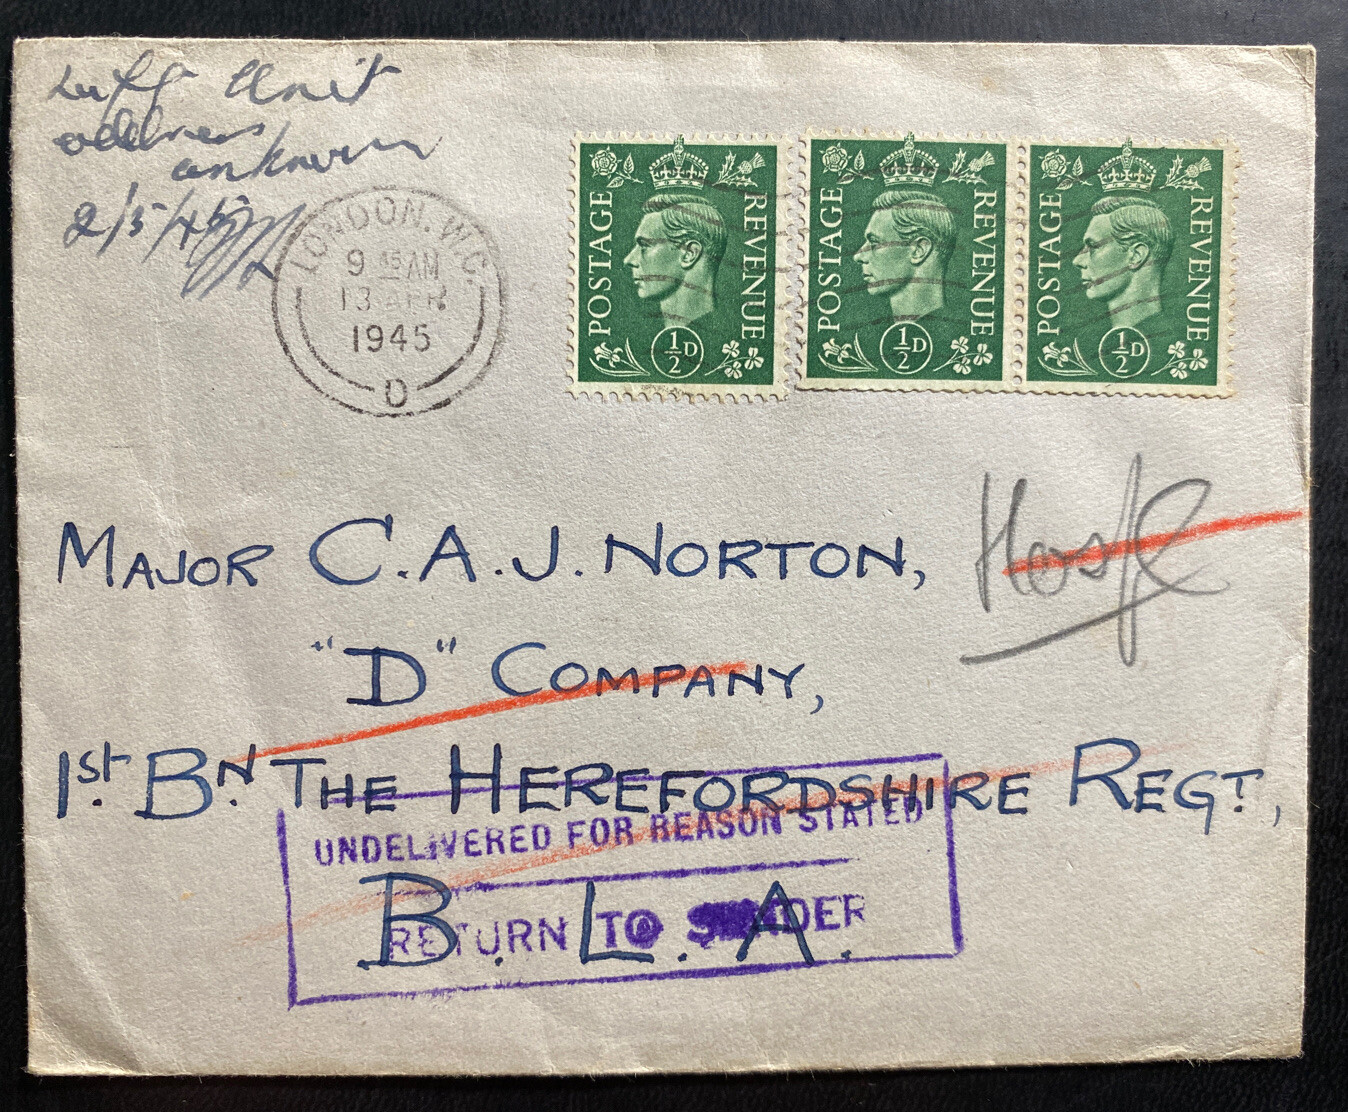 Left Unit
address
unknown
2/5/45
LONDON. W.C.
9 45 AM
13 APR
1945
D
POSTAGE REVENUE
½D
POSTAGE REVENUE
½D
POSTAGE REVENUE
½D
MAJOR C.A.J. NORTON,
"D" COMPANY,
1st. BN. THE HEREFORDSHIRE REGT.,
B. L. A.
UNDELIVERED FOR REASON STATED
RETURN TO SENDER